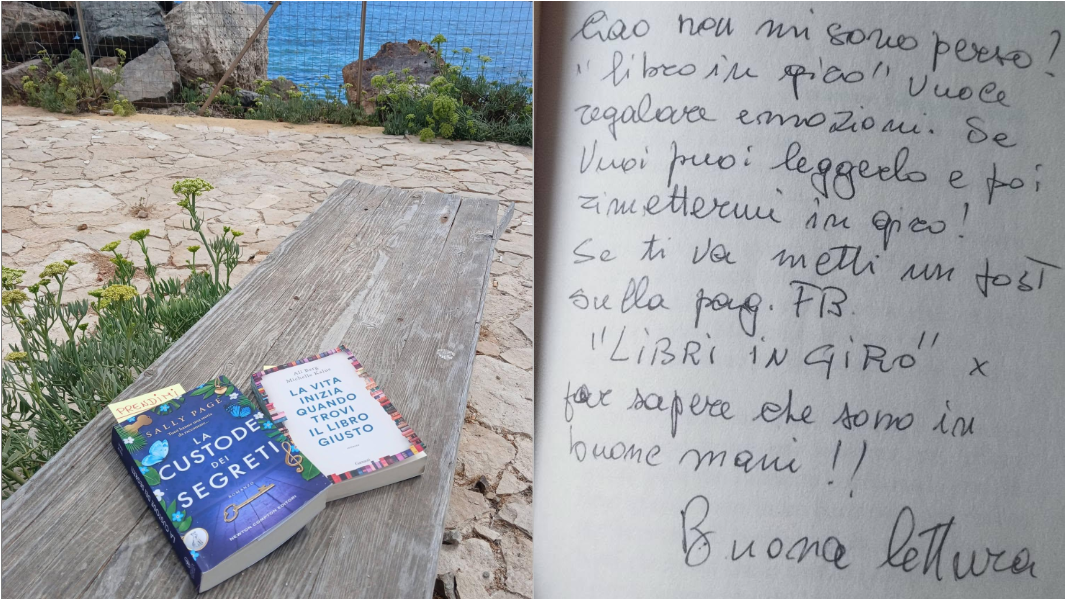 PRENDIMI
SALLY PAGE
Tutti hanno una storia
da raccontare...
LA
CUSTODE
DEI
SEGRETI
ROMANZO
NEWTON COMPTON EDITORI
Ali Berg
Michelle Kalus
LA VITA
INIZIA
QUANDO
TROVI
IL LIBRO
GIUSTO
Garzanti
Ciao non mi sono perso!
"libro in giro" vuole
regalare emozioni. Se
vuoi puoi leggerlo e poi
rimettermi in giro!
Se ti va metti un post
sulla pag. FB.
"LIBRI IN GIRO" x
far sapere che sono in
buone mani!!
Buona lettura